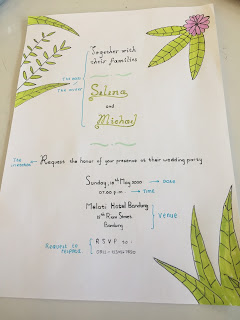 Together with
their families
The man
/
The host
Selena
and
Michael
The
invitation
Request the honor of your presence at their wedding party
Sunday, 10th May 2020 → Date
07.00 p.m → Time
Melati Hotel Bandung
Riau Street
Bandung
Venue
Request to
respond
RSVP to :